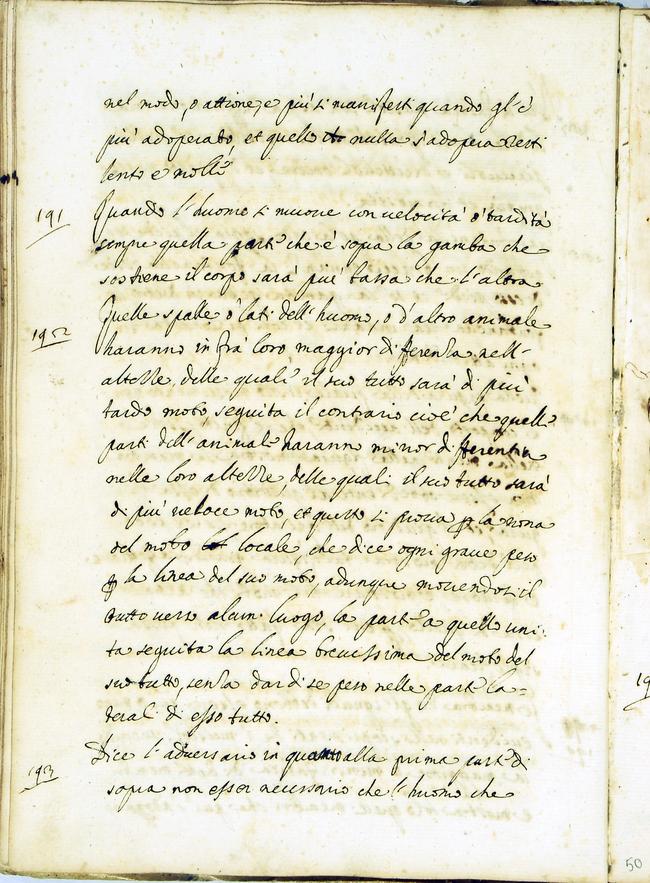 nel modo, o attione, e più si manifesti quando gl'è
più adoperato, et quello che nulla s'adopera resti
lento e molle
191 Quando l'huomo si muove con velocità o' tardità
sempre quella parte che è sopra la gamba che
sostiene il corpo sarà più bassa che l'altra
192 Quelle spalle o' lati dell'huomo, o d'altro animale
haranno in frà loro maggior differenza nell'
altezze, delle quali il suo tutto sarà di più
tardo moto, seguita il contrario cioè che quelle
parti dell'animale haranno minor differentia
nelle loro altezze delle quali il suo tutto sarà
di più veloce moto, et questo si prova p la nona
del moto locale, che dice ogni grave peso
p la linea del suo moto, adunque movendosi il
tutto verso alcun luogo, la parte a quello uni-
ta seguita la linea brevissima del moto del
suo tutto, senza dar di se peso nelle parte la-
terali di esso tutto.
193 Dice l'adversario in quanto alla prima parte di
sopra non esser necessario che l'huomo che
50